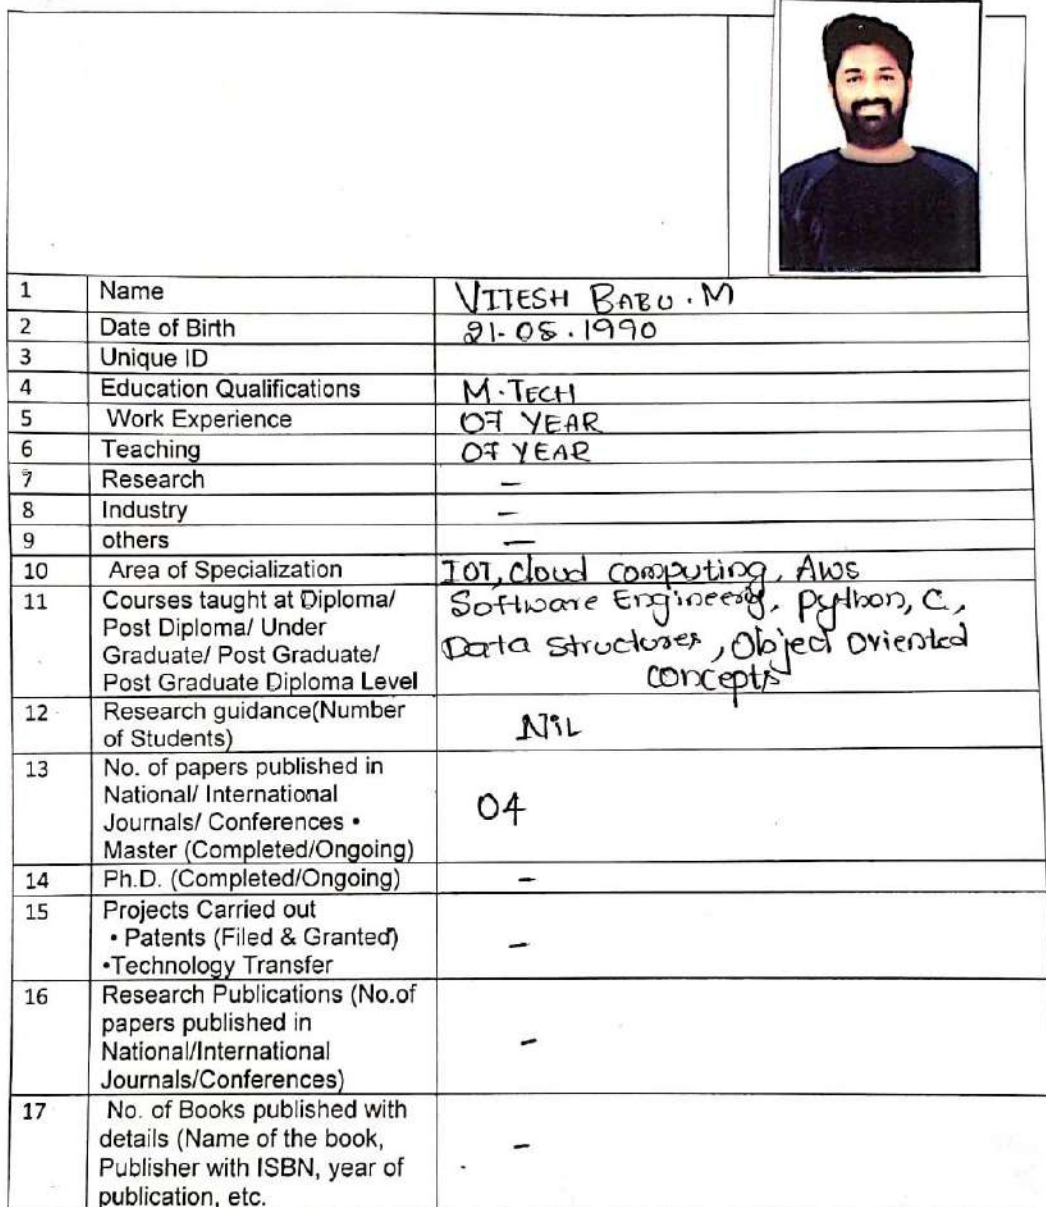 1 Name VITESH BABU . M
2 Date of Birth 21-05.1990
3 Unique ID
4 Education Qualifications M.TECH
5 Work Experience 07 YEAR
6 Teaching 07 YEAR
7 Research –
8 Industry –
9 others —
10 Area of Specialization IOT, Cloud computing, AWS
11 Courses taught at Diploma/ Software Engineering, python, C,
Post Diploma/ Under
Graduate/ Post Graduate/ Data Structures, Object oriented
Post Graduate Diploma Level concepts
12 Research guidance(Number
of Students) NiL
13 No. of papers published in
National/ International
Journals/ Conferences • 04
Master (Completed/Ongoing)
14 Ph.D. (Completed/Ongoing) –
15 Projects Carried out
• Patents (Filed & Granted) –
•Technology Transfer
16 Research Publications (No.of
papers published in
National/International –
Journals/Conferences)
17 No. of Books published with
details (Name of the book, –
Publisher with ISBN, year of
publication, etc.